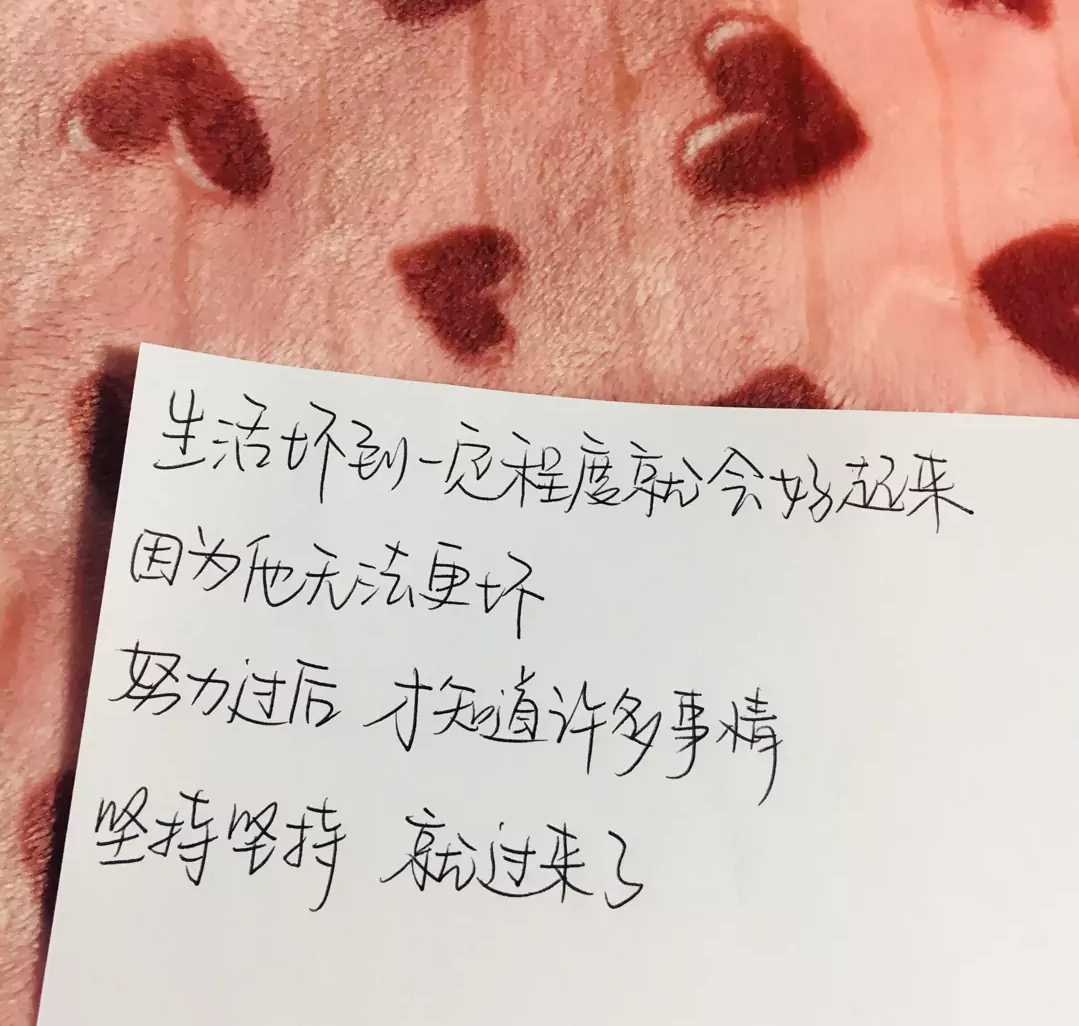 生活坏到一定程度就会好起来
因为他无法更坏
努力过后 才知道许多事情
坚持坚持 就过来了